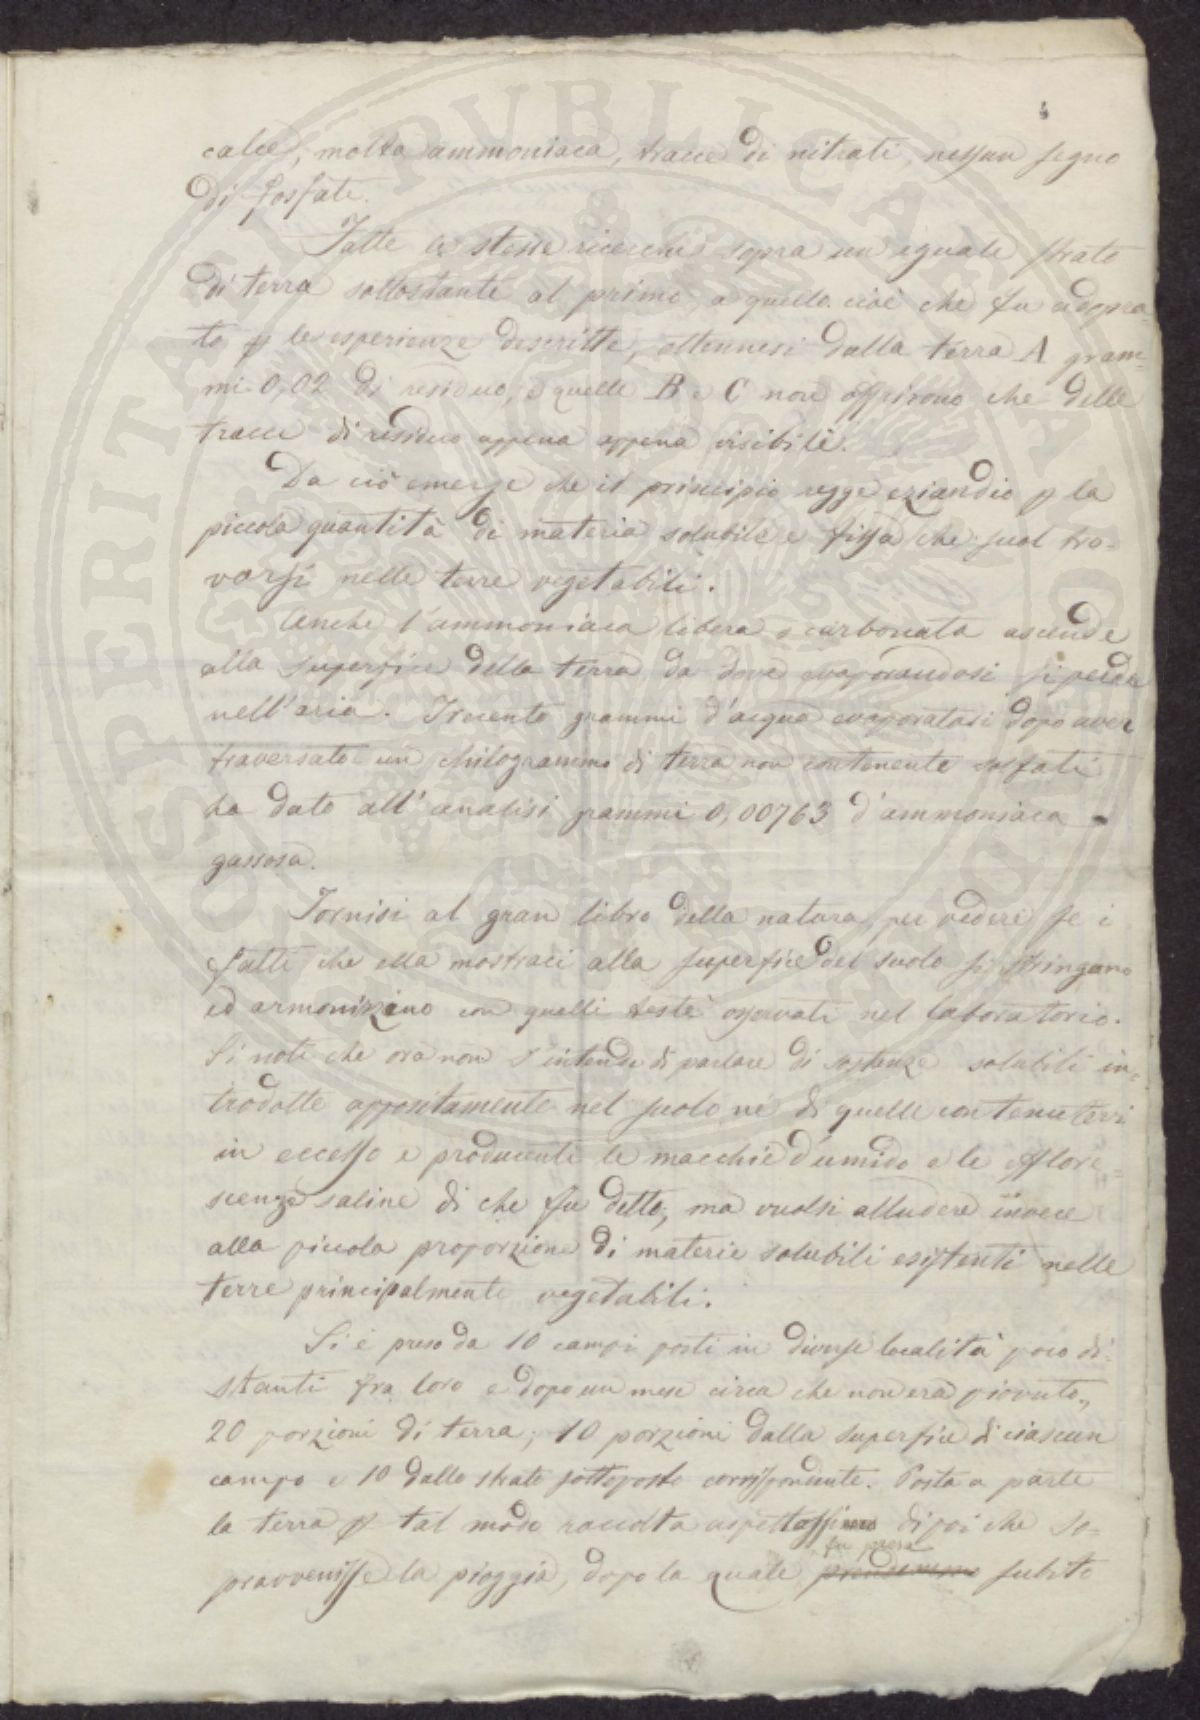 4
calce, molta ammoniaca, tracce di nitrati, nessun segno
di fosfati.
Fatte le stesse ricerche sopra un eguale strato
di terra sottostante al primo, a quello cioè che fu adopra-
to p le esperienze descritte, ottennesi dalla terra A gram-
mi 0,02 di residuo, e quelle B e C non offrirono che delle
tracce di residuo appena appena visibili.
Da ciò emerge che il principio regge eziandio p la
piccola quantità di materia solubile e fissa che suol tro-
varsi nelle terre vegetabili.
Anche l'ammoniaca libera o carbonata ascende
alla superficie della terra da dove evaporandosi si perde
nell'aria. Trecento grammi d'acqua evaporatasi dopo aver
traversato un chilogrammo di terra non contenente solfati
ha dato all'analisi grammi 0,00763 d'ammoniaca
gassosa.
Tornisi al gran libro della natura per vedere se i
fatti che ella mostraci alla superficie del suolo si stringano
ed armonizzino con quelli testè osservati nel laboratorio.
Si noti che ora non s'intende di parlare di sostenze solubili in-
trodotte appositamente nel suolo nè di quelle contenutevi
in eccesso e producenti le macchie d'umido e le efflore-
scenze saline di che fu detto, ma vuolsi alludere invece
alla piccola proporzione di materie solubili esistenti nelle
terre principalmente vegetabili.
Si è preso da 10 campi posti in diverse località poco di-
stanti fra loro e dopo un mese circa che non era piovuto,
20 porzioni di terra; 10 porzioni dalla superficie di ciascun
campo e 10 dallo strato sottoposto corrispondente. Posta a parte
la terra p tal modo raccolta aspettossi dipoi che so-
fu presa
pravvenisse la pioggia, dopo la quale prendemmo subito